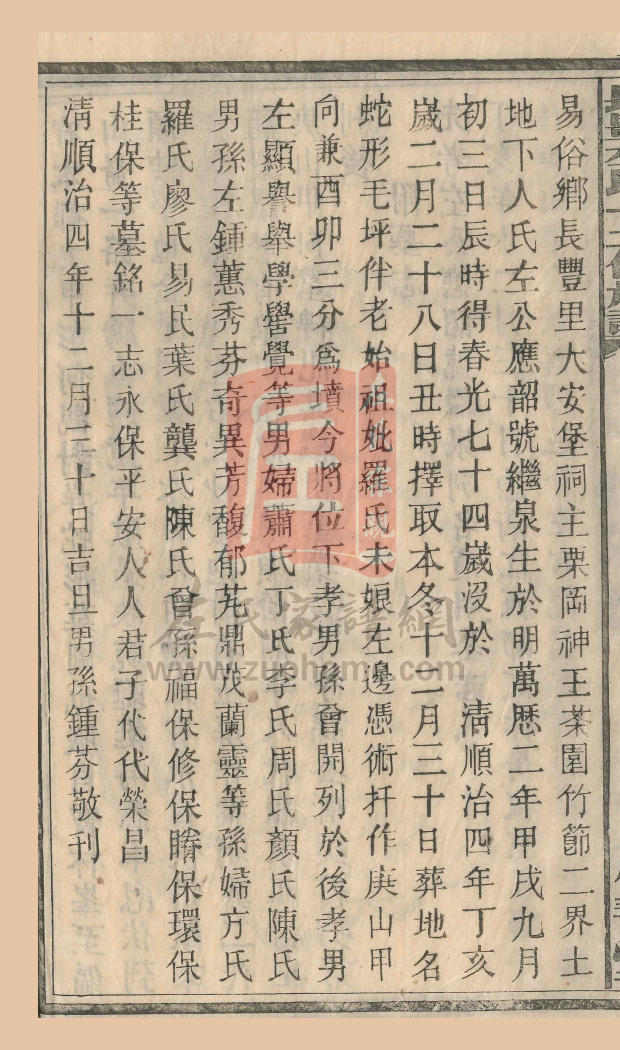 易俗鄉長豐里大安堡祠主栗岡神王茶園竹節二界土
地下人氏左公應韶號繼泉生於明萬厯二年甲戌九月
初三日辰時得春光七十四歲沒於 清順治四年丁亥
歲二月二十八日丑時擇取本冬十二月三十日葬地名
蛇形毛坪伴老始祖妣羅氏未娘左邊憑術扦作庚山甲
向兼酉卯三分爲墳今將位下孝男孫曾開列於後孝男
左顯譽舉學嚳覺等男婦蕭氏丁氏李氏周氏顏氏陳氏
男孫左鍾蕙秀芬奇異芳馥郁芃鼎茂蘭靈等孫婦方氏
羅氏廖氏易民葉氏龔氏陳氏曾孫福保修保保環保
桂保等墓銘一志永保平安人人君子代代榮昌
清順治四年十二月三十日吉旦男孫鍾芬敬刊
左氏家譜網
www.zuohome.com